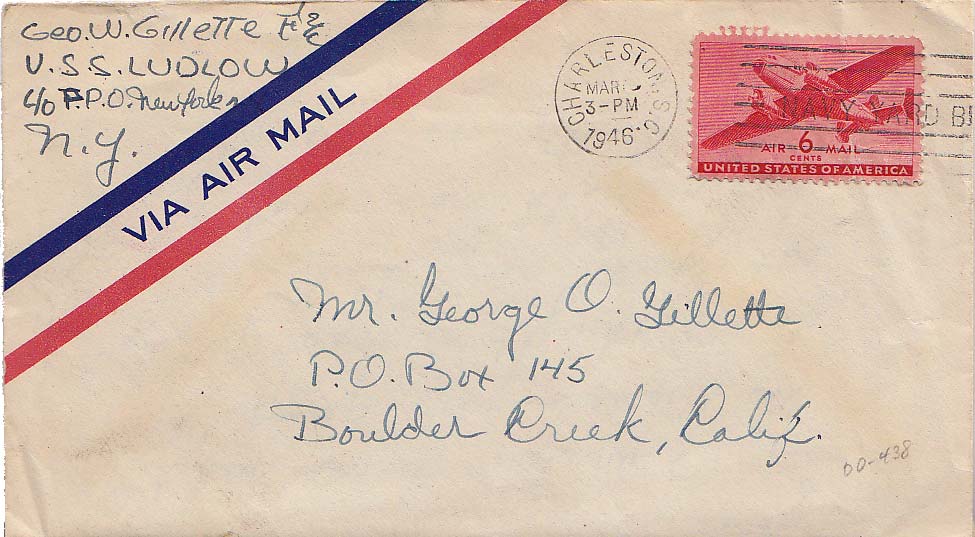 Geo. W. Gillette F 2/c
U.S.S. LUDLOW
c/o F.P.O. New York
N.Y.
VIA AIR MAIL
CHARLESTON, S.C.
MAR
3-PM
1946
NAVY YARD
AIR 6 MAIL
CENTS
UNITED STATES OF AMERICA
Mr. George O. Gillette
P.O. Box 145
Boulder Creek, Calif.
DD-438